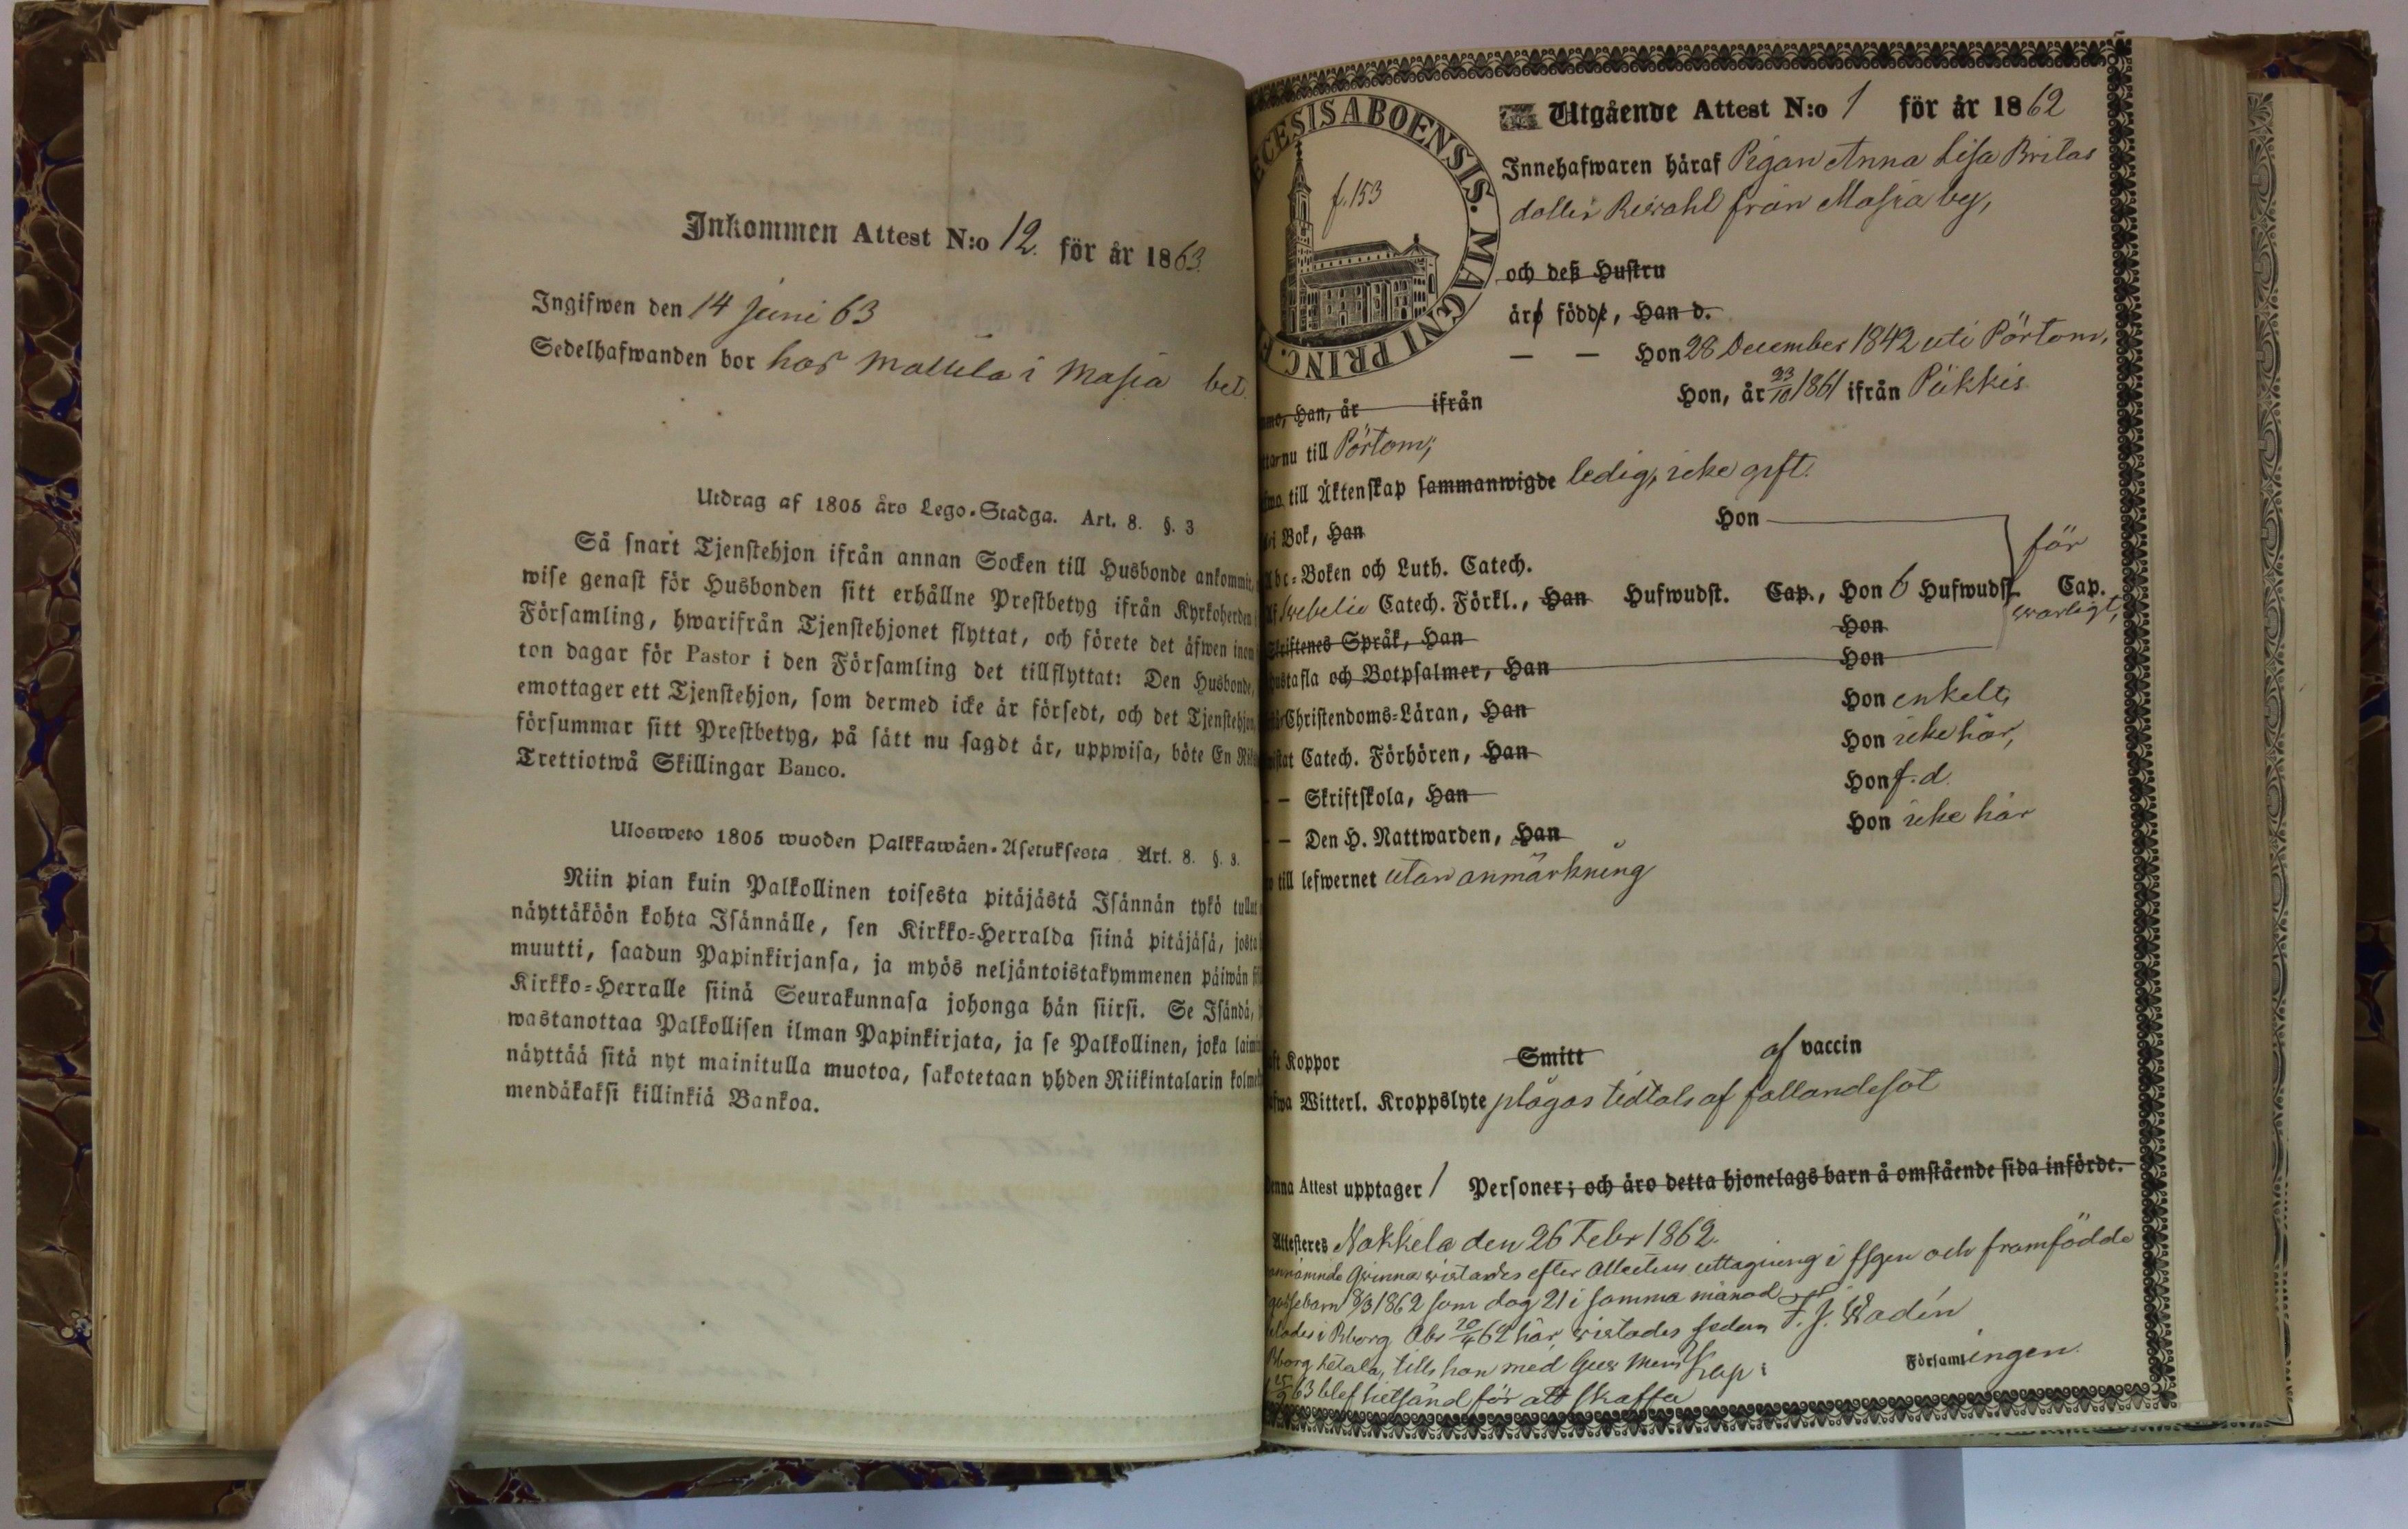 Inkommen Attest N:o 12. för år 1863.
Ingifwen den 14 Juni 63
Sedelhafwanden bor hos Mattila i Masia bet.
Utdrag af 1805 års Lego-Stadga. Art. 8. §. 3
Så snart Tjenstehjon ifrån annan Socken till Husbonde ankommit,
wise genast för Husbonden sitt erhållne Prestbetyg ifrån Kyrkoherden i
Församling, hwarifrån Tjenstehjonet flyttat, och förete det äfwen inom
ton dagar för Pastor i den Församling det tillflyttat: Den Husbonde,
emottager ett Tjenstehjon, som dermed icke är försedt, och det Tjenstehjon,
försummar sitt Prestbetyg, på sätt nu sagdt är, uppwisa, böte En
Trettiotwå Skillingar Banco.
Ulosweto 1805 wuoden Palkkawäen-Asetuksesta Art. 8. §. 3.
Niin pian kuin Palkollinen toisesta pitäjästä Isännän tykö tullut
näyttäköön kohta Isännälle, sen Kirkko-Herralda siinä pitäjäsä, josta
muutti, saadun Papinkirjansa, ja myös neljäntoistakymmenen päiwän
Kirkko-Herralle siinä Seurakunnasa johonga hän siirsi. Se Isändä,
wastanottaa Palkollisen ilman Papinkirjata, ja se Palkollinen, joka
näyttää sitä nyt mainitulla muotoa, sakotetaan yhden Riikintalarin
mendäkaksi killinkiä Bankoa.
ECESIS ABOENSIS. MAGNI PRINC. F
f. 153
Utgående Attest N:o 1 för år 1862
Innehafwaren häraf Pigan Anna Lisa Britas
dotter från Masia by,
och deß Hustru
äro födde, Han d.
— — Hon 28 December 1842 uti Pörtom,
Han, år ifrån Hon, år 23/10 1861 ifrån Pikkis
nu till Pörtom,
till Äktenskap sammanwigde ledig, icke gift.
i Bok, Han Hon
Abc-Boken och Luth. Catech. för
Af Svebelii Catech. Förkl., Han Hufwudst. Cap., Hon 6 Hufwudst. Cap.
swarligt,
Skriftenes Språk, Han Hon
Hustafla och Botpsalmer, Han Hon
Christendoms-Läran, Han Hon enkelt,
Catech. Förhören, Han Hon icke här,
— Skriftskola, Han Hon f. d.
— Den H. Nattwarden, Han Hon icke här
till lefwernet utan anmärkning
Koppor Smitt af vaccin
Witterl. Kroppslyte plågas tidtals af fallandesot
Attest upptager 1 Personer; och äro detta hjonelags barn å omstående sida införde.
Attesteres Nakkila den 26 Febr 1862.
qvinna wistades efter Attestens uttagning i fsgen och framfödde
gossebarn 9/3 1862 som dog 21 i samma månad
i Bborg 20/4 62 här, wistades sedan F. J. Wadén
Bborg tills hon med
63 blef hitsänd för att skaffa Församlingen.